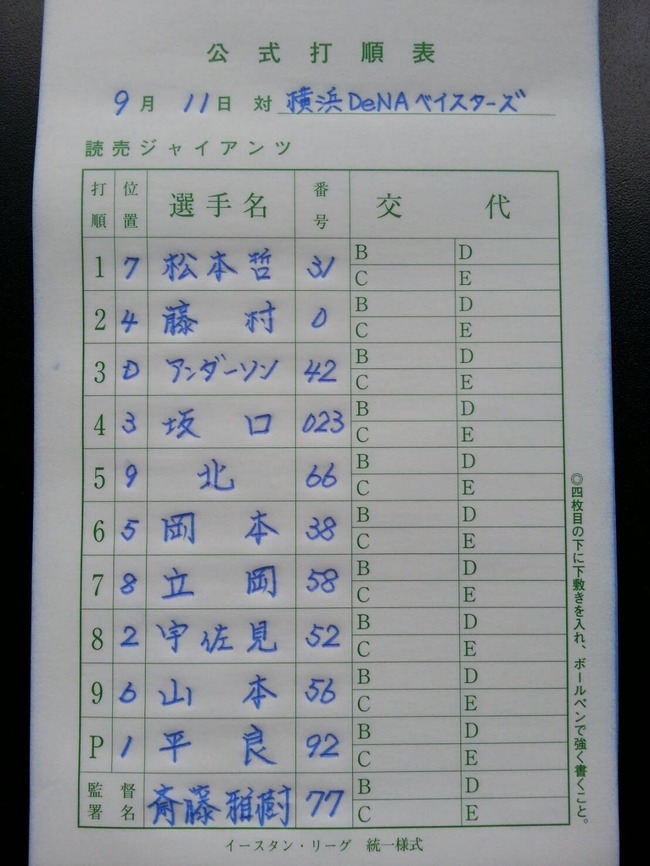 公式打順表
9月 11日 対 横浜DeNAベイスターズ
読売ジャイアンツ
打順 位置 選手名 番号 交代
1 7 松本哲 31 B D
C E
2 4 藤村 0 B D
C E
3 D アンダーソン 42 B D
C E
4 3 坂口 023 B D
C E
5 9 北 66 B D
C E
6 5 岡本 38 B D
C E
7 8 立岡 58 B D
C E
8 2 宇佐見 52 B D
C E
9 6 山本 56 B D
C E
P 1 平良 92 B D
C E
監督署名 斎藤雅樹 77 B D
C E
◎四枚目の下に下敷きを入れ、ボールペンで強く書くこと。
イースタン・リーグ 統一様式